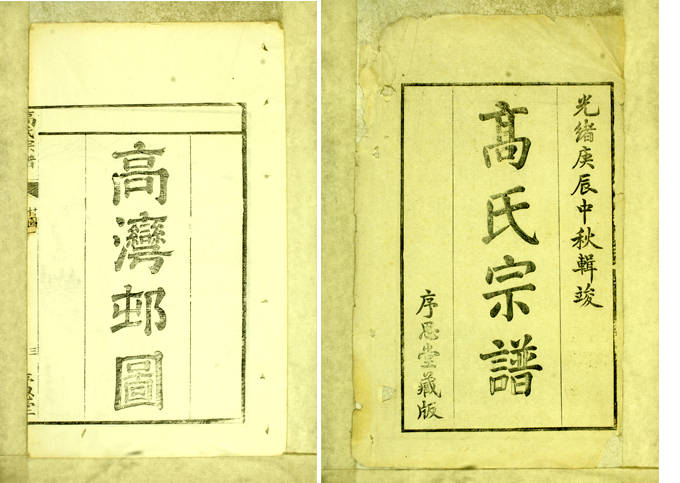 光緒庚辰中秋輯竣
髙氏宗譜
序思堂藏版
高灣邨圖
髙氏宗譜